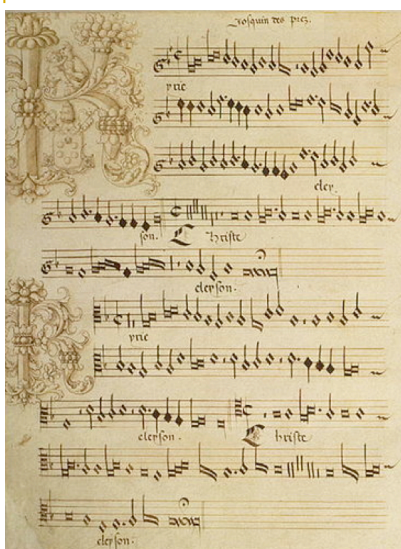 Josquin des prez.
yrie
eley
son. Christe
eleyson.
yrie
eleyson. Christe
eleyson.